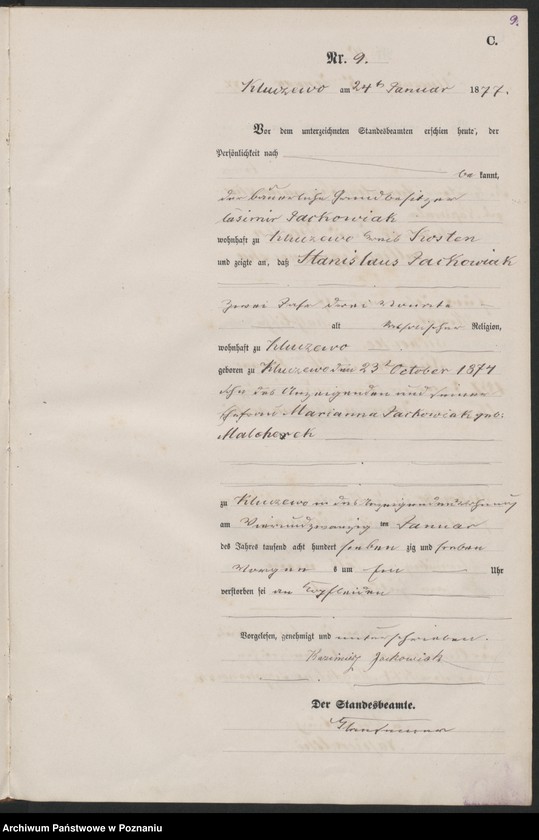 9.
C.
Nr. 9.
Kluczewo am 24t Januar 1877.
Vor dem unterzeichneten Standesbeamten erschien heute, der
Persönlichkeit nach
be kannt,
der bäuerliche Grundbesitzer
Casimir Jackowiak
wohnhaft zu Kluczewo Kreis Kosten
und zeigte an, daß Stanislaus Jackowiak
zwei Jahr drei Monate
alt katholischer Religion,
wohnhaft zu Kluczewo
geboren zu Kluczewo den 23t October 1874
Sohn des Anzeigenden und seiner
Ehefrau Marianna Jackowiak geb:
Malcherek
zu Kluczewo in des Anzeigenden Wohnung
am Vierundzwanzig ten Januar
des Jahres tausend acht hundert sieben zig und sieben
Morgen s um Uhr
verstorben sei an Kopfleiden
Vorgelesen, genehmigt und unterschrieben.
Kazimierz Jackowiak
Der Standesbeamte.
Archiwum Państwowe w Poznaniu